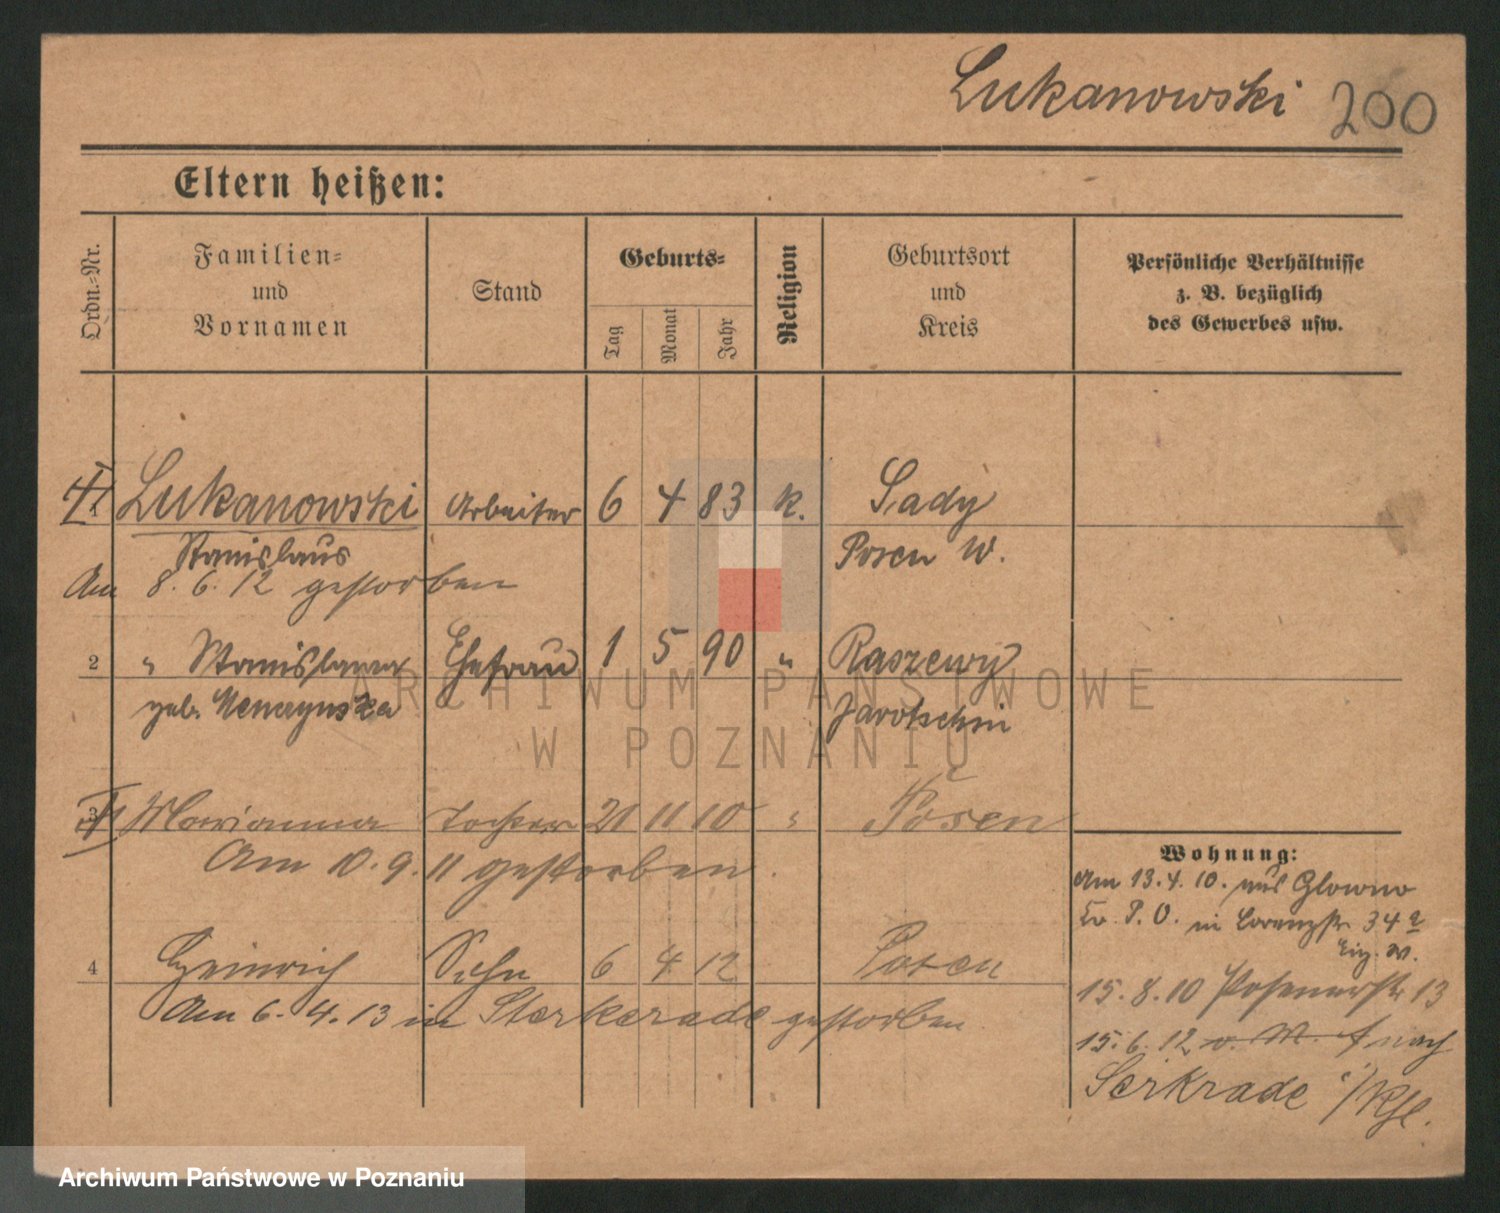 Lukanowski 200
Eltern heißen:
Ordn.-Nr.
Familien-
und
Vornamen
Stand
Geburts-
Tag
Monat
Jahr
Religion
Geburtsort
und
Kreis
Persönliche Verhältnisse
z. B. bezüglich
des Gewerbes usw.
1 Lukanowski Arbeiter 6 4 83 k. Sady
Stanislaus Posen W.
Am 8. 6. 12 gestorben
2 " Stanislawa Ehefrau 1 5 90 " Raszewy
geb. Jarotschin
3 Marianna Tochter 21 11 10 " Posen
Am 10. 9. 11 gestorben.
4 Heinrich Sohn 6 4 12 Posen
Am 6. 4. 13 in Sterkrade gestorben
Wohnung:
Am 13. 4. 10. aus Glowno
Kr. P. O. in Lorenzstr. 34a
15. 8. 10 Posenerstr 13
15. 6. 12 v. M. nach
Serkrade
ARCHIWUM PAŃSTWOWE
W POZNANIU
Archiwum Państwowe w Poznaniu